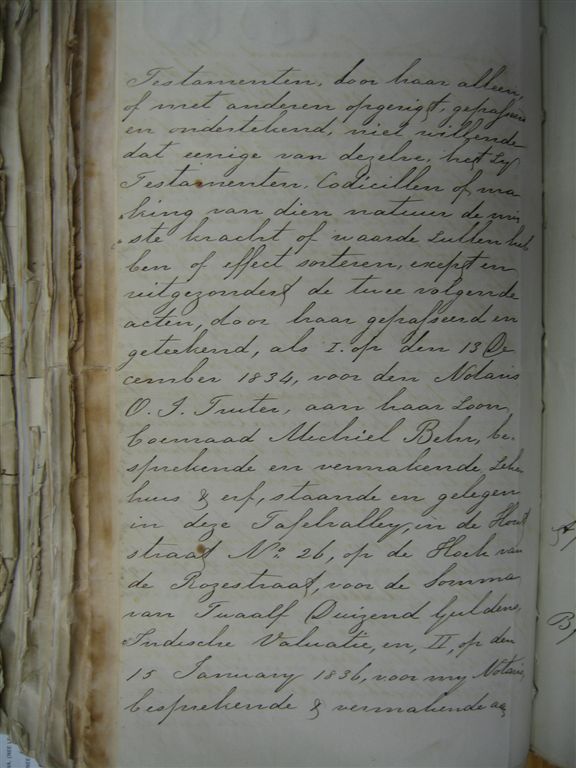 Testamenten, door haar alleen,
of met anderen opgerigt, gepasseerd
en onderteekend, niet willende
dat eenige van dezelve, het zy
Testamenten, Codicillen of ma
king van dien natuur de min
ste kracht of waarde zullen heb
ben of effect sorteren, except en
uitgezonderd de twee volgende
acten, door haar gepasseerd en
geteekend, als I. op den 13 De
cember 1834, voor den Notaris
O. J. Truter, aan haar zoon,
Coenraad Mechiel Behr, be-
sprekende en vermakende zeker
huis & erf, staande en gelegen
in deze Tafelvalley, in de Hout
straat No. 26, op de Hoek van
de Rozestraat, voor de somma
van Twaalf Duizend Guldens,
Indische Valuatie, en, II, op den
15 January 1836, voor my Notaris,
besprekende & vermakende aa